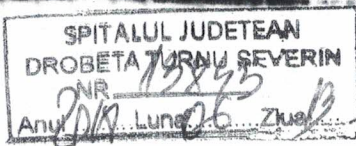 SPITALUL JUDETEAN
DROBETA TURNU SEVERIN
NR
Anul Luna 06 Ziua 13